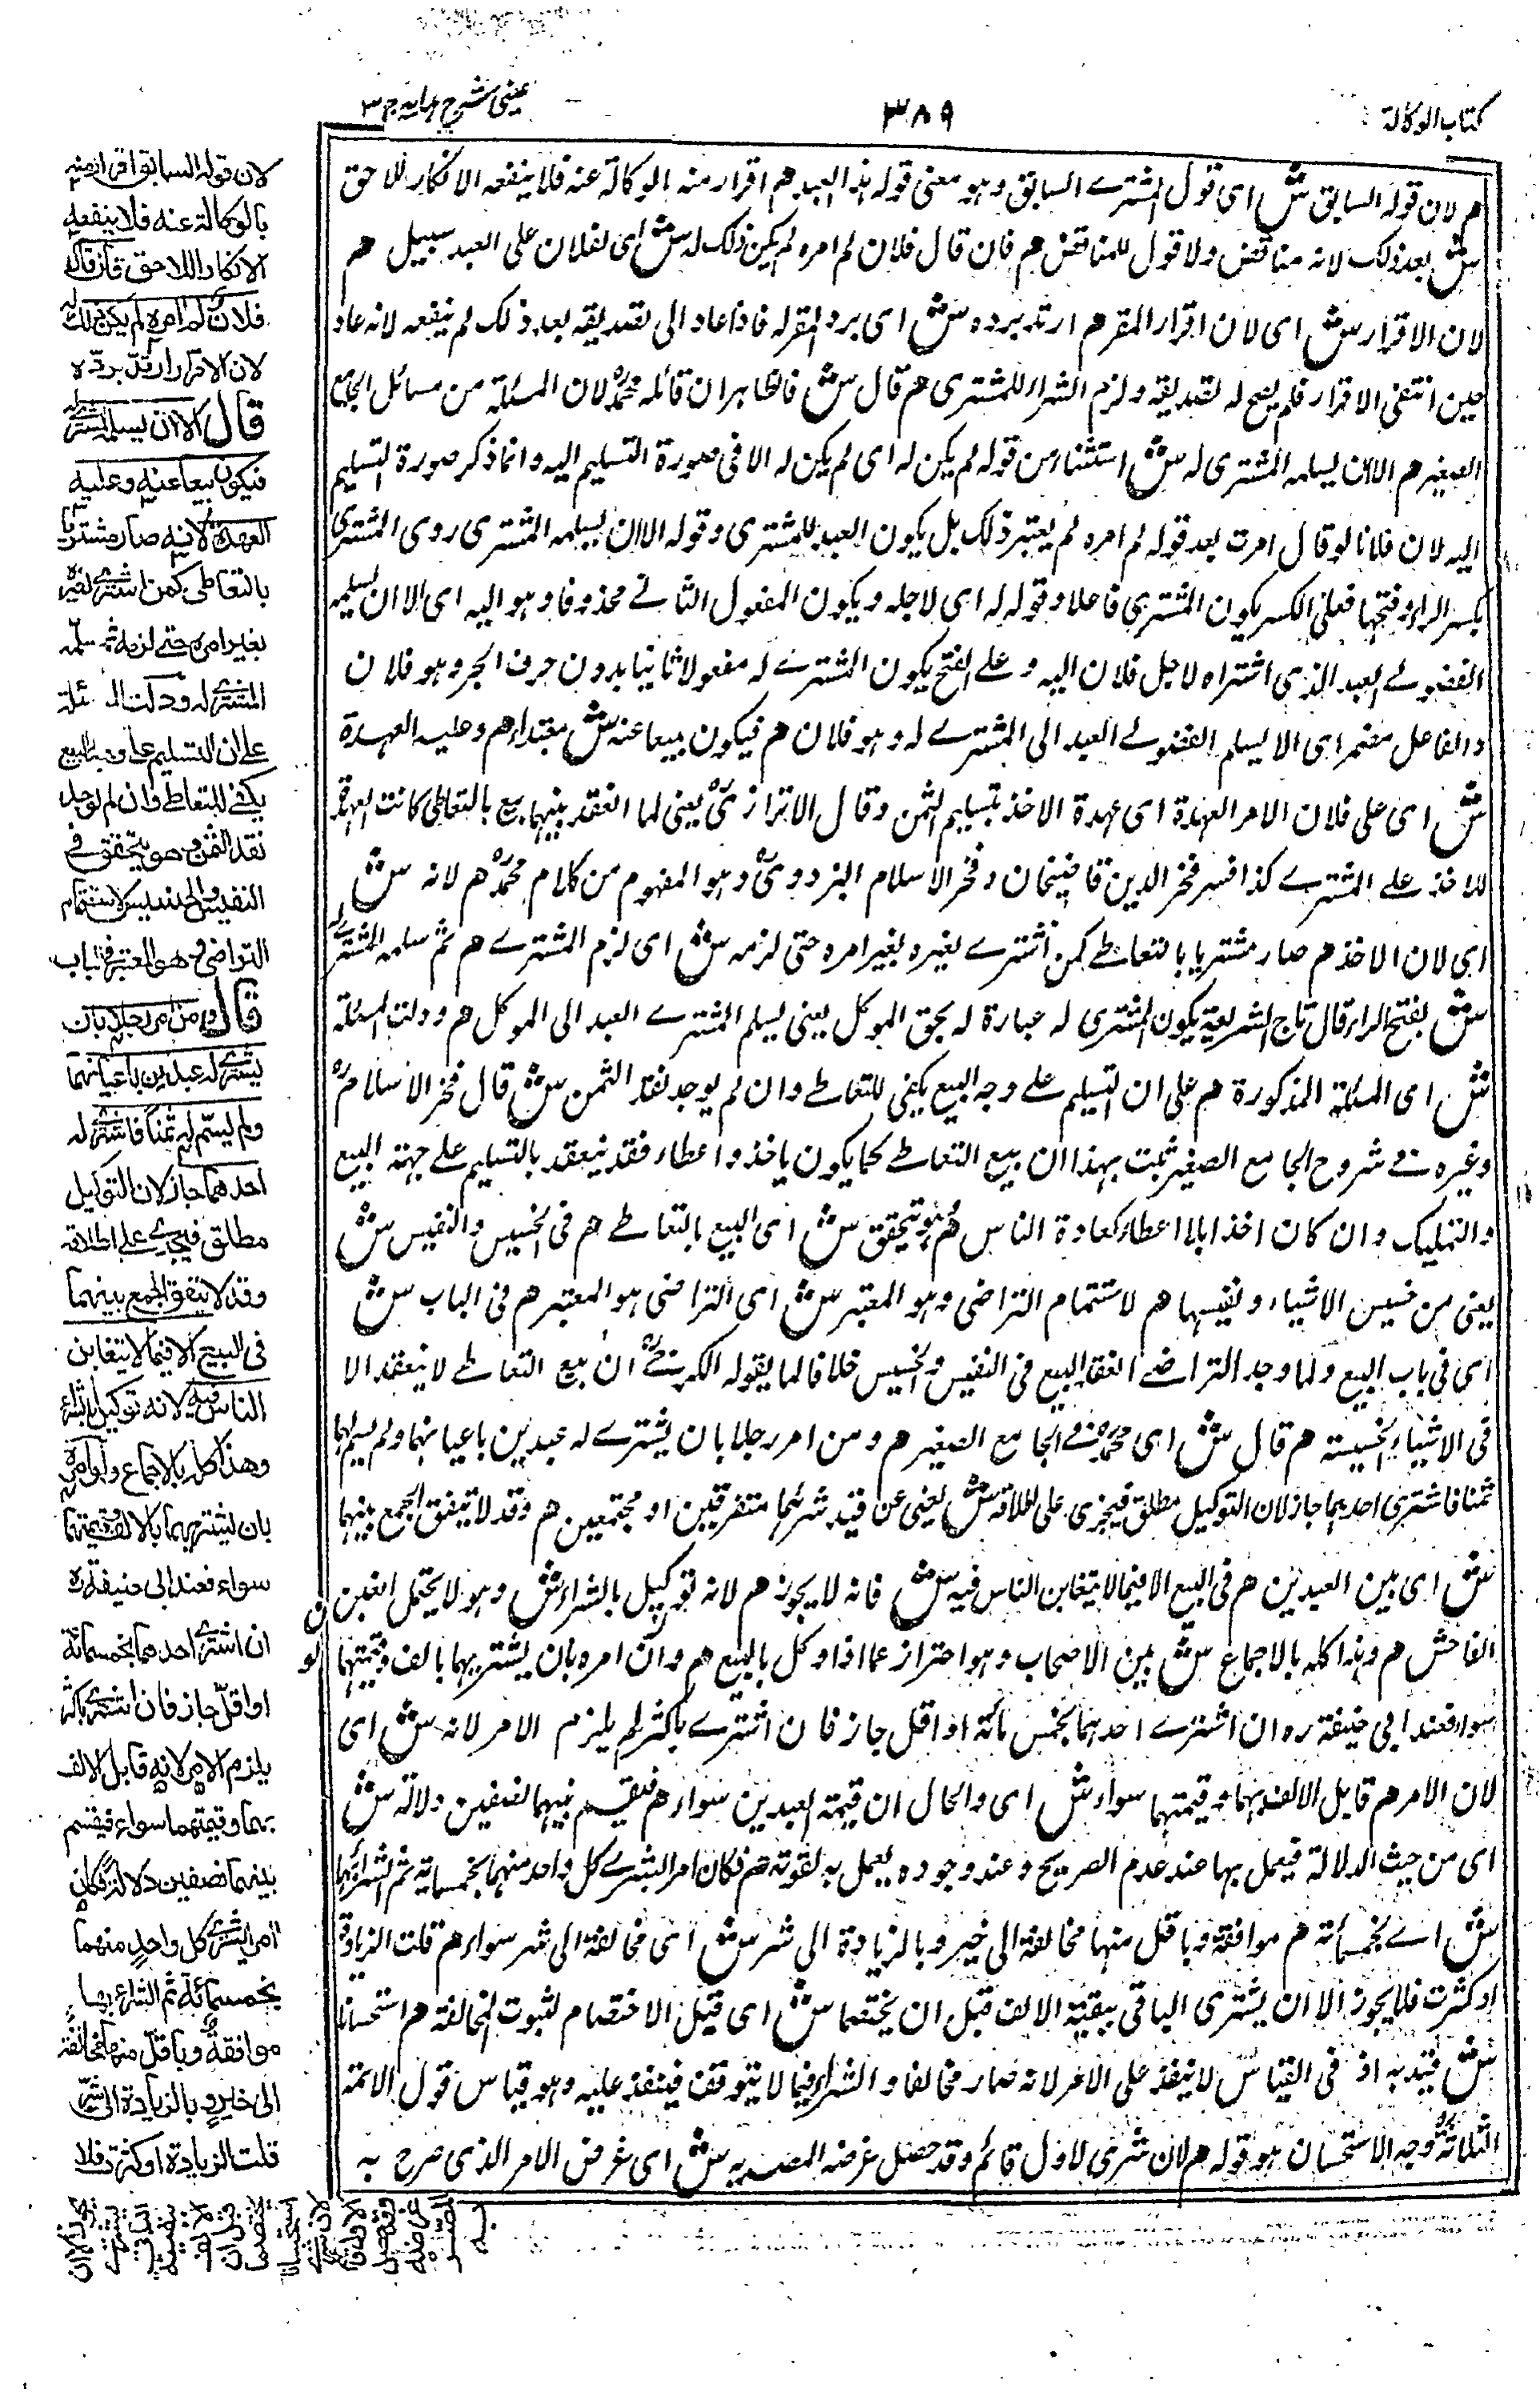 كتاب الوكالة
٣٨٩
عينى شرح هدايه ج ٣
م لان قوله السابق ش اى قول المشترے السابق وهو معنى قوله هذا العبد هم اقرار منه بالوكالة عنه فلا ينفعه الانكار اللاحق
ش بعد ذلك لانه مناقض ولا قول للمناقض هم فان قال فلان لم امره لم يكن ذلك له ش اى لفلان على العبد سبيل هم
لان الاقرار ش اى لان اقرار المقر هم ارتد برده ش اى برد المقر له فاذا عاد الى تصديقه بعد ذلك لم ينفعه لانه عاد
حين انتفى الاقرار فلم يصح له تصديقه ولزم الشراء للمشترى هم قال ش فالظاهر ان قائله محمدؒ لان المسئلة من مسائل الجامع
الصغير هم الا ان يسلمه المشترى له ش استثناء من قوله لم يكن له اى لم يكن له الا فى صورة التسليم اليه وانما ذكر صورة التسليم
اليه لان فلانا لو قال امرت بعد قوله لم امره لم يعتبر ذلك بل يكون العبد للمشترى وقوله الا ان يسلمه المشترى روى المشترى
بكسر الراء وفتحها فعلى الكسر يكون المشترى فاعلا وقوله له اى لاجله ويكون المفعول الثانے محذوفا وهو اليه اى الا ان يسلمه
الفضولے العبد الذى اشتراه لاجل فلان اليه وعلے الفتح يكون المشترے له مفعولا ثانيا بدون حرف الجر وهو فلان
والفاعل مضمر اى الا يسلم الفضولے العبد الى المشترے له وهو فلان هم فيكون بيعا عنه ش مبتدأ هم وعليه العهدة
ش اى على فلان الامر العهدة اى عهدة الاخذ بتسليم الثمن وقال الاترازىؒ يعنى لما انعقد بينهما بيع بالتعاطى كانت العهدة
للاخذ علے المشترے كذا فسر فخر الدين قاضيخان وفخر الاسلام البزدوىؒ وهو المفهوم من كلام محمدؒ هم لانه ش
اى لان الاخذ هم صار مشتريا بالتعاطے كمن اشترے لغيره بغير امره حتى لزمه ش اى لزم المشترے هم ثم سلمه المشترے له
ش بفتح الراء قال تاج الشريعة يكون المشترى له عبارة له بحق الموكل يعنى يسلم المشترے العبد الى الموكل هم ودلت المسئلة
ش اى المسئلة المذكورة هم على ان التسليم علے وجه البيع يكفى للتعاطے وان لم يوجد نقد الثمن ش قال فخر الاسلامؒ
وغيره فے شروح الجامع الصغير ثبت بهذا ان بيع التعاطے كما يكون ياخذ واعطاء فقد ينعقد بالتسليم علے جهة البيع
والتمليك وان كان اخذا بلا اعطاء كعادة الناس هم وهو يتحقق ش اى البيع بالتعاطے هم فى الخسيس والنفيس ش
يعنى من خسيس الاشياء ونفيسها هم لاستتمام التراضى وهو المعتبر ش اى التراضى هو المعتبر هم فى الباب ش
اى فى باب البيع ولما وجد التراضے انعقد البيع فى النفيس والخسيس خلافا لما يقوله الكرخےؒ ان بيع التعاطے لا ينعقد الا
فى الاشياء الخسيسة هم قال ش اى محمدؒ فے الجامع الصغير هم ومن امر رجلا بان يشترے له عبدين باعيانهما ولم يسم لهما
ثمنا فاشترى احدهما جاز لان التوكيل مطلق فيجرى على اطلاقه ش يعنى عن قيد شرائهما متفرقين او مجتمعين هم وقد لا يتفق الجمع بينهما
ش اى بين العبدين هم فى البيع الا فيما لا يتغابن الناس فيه ش فانه لا يجوز هم لانه توكيل بالشراء ش وهو لا يحتمل الغبن
الفاحش هم وهذا كله بالاجماع ش بين الاصحاب وهو احتراز عما اذا وكل بالبيع هم وان امره بان يشتريهما بالف وقيمتهما
سواء فعند ابى حنيفة ره ان اشترے احدهما بخمس مائة او اقل جاز فان اشترے باكثر لم يلزم الامر لانه ش اى
لان الامر هم قابل الالف بهما وقيمتهما سواء ش اى والحال ان قيمة العبدين سواء هم فيقسم بينهما نصفين دلالة ش
اى من حيث الدلالة فيعمل بها عند عدم الصريح وعند وجوده يعمل به لقوته هم فكان امرا بشرے كل واحد منهما بخمسمائة ثم الشراء بها
ش اے بخمسمائة هم موافقة وباقل منها مخالفة الى خير وبالزيادة الى شر ش اى مخالفة الى شر سواء هم قلت الزيادة
او كثرت فلا يجوز الا ان يشترى الباقى ببقية الالف قبل ان يختصما ش اى قبل الاختصام لثبوت المخالفة هم استحسانا
ش قيد به اذ فى القياس لا ينفذ على الامر لانه صار مخالفا والشراء فيما لا يتوقف فينفذ عليه وهو قياس قول الائمة
الثلاثةؒ وجه الاستحسان هو قوله هم لان شرى الاول قائم وقد حصل غرضه المصرح به ش اى غرض الامر الذى صرح به
لان قوله السابق اقرار منه
بالوكالة عنه فلا ينفعه
الانكار اللاحق فان قال
فلان لم امره لم يكن ذلك له
لان الاقرار ارتد برده
قال الا ان يسلمه المشترى له
فيكون بيعا عنه وعليه
العهدة لانه صار مشتريا
بالتعاطى كمن اشترى لغيره
بغير امره حتى لزمه ثم سلمه
المشترى له ودلت المسئلة
على ان التسليم على وجه البيع
يكفى للتعاطى وان لم يوجد
نقد الثمن وهو يتحقق فى
النفيس والخسيس لاستتمام
التراضى وهو المعتبر فى الباب
قال ومن امر رجلا بان
يشترى له عبدين باعيانهما
ولم يسم له ثمنا فاشترى له
احدهما جاز لان التوكيل
مطلق فيجرى على اطلاقه
وقد لا يتفق الجمع بينهما
فى البيع الا فيما لا يتغابن
الناس فيه لانه توكيل بالشراء
وهذا كله بالاجماع ولو امره
بان يشتريهما بالالف وقيمتهما
سواء فعند ابى حنيفة ره
ان اشترى احدهما بخمسمائة
او اقل جاز فان اشترى باكثر
يلزم الامر لانه قابل الالف
بهما وقيمتهما سواء فيقسم
بينهما نصفين دلالة فكان
امرا بشرى كل واحد منهما
بخمسمائة ثم الشراء بها
موافقة وباقل منها مخالفة
الى خير وبالزيادة الى شر
قلت الزيادة او كثرت فلا